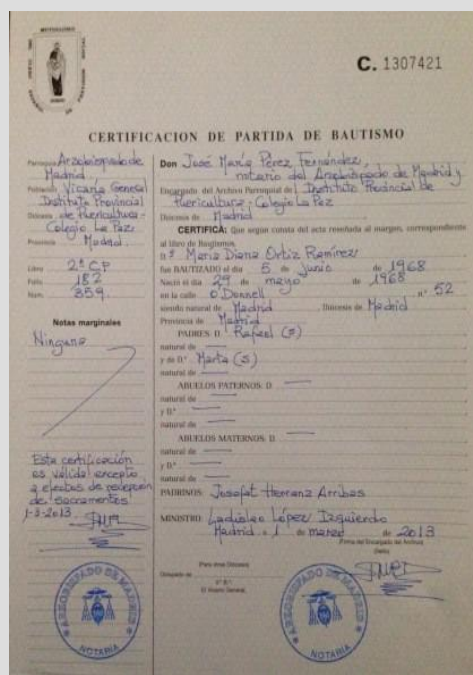 C. 1307421
CERTIFICACION DE PARTIDA DE BAUTISMO
Parroquia Arzobispado de
Madrid.
Población Vicaría General
Instituto Provincial
Diócesis de Puericultura-
Colegio La Paz.
Provincia Madrid.
Libro 2ª CP
Folio 182
Núm. 359.
Notas marginales
Ninguna
Esta certificación
es válida excepto
a efectos de recepción
de sacramentos
1-3-2013
Don José María Pérez Fernández,
notario del Arzobispado de Madrid y
Encargado del Archivo Parroquial de Instituto Provincial de
Puericultura-Colegio La Paz
Diócesis de Madrid
CERTIFICA: Que según consta del acta reseñada al margen, correspondiente
al libro de Bautismos,
D.ª Maria Diana Ortiz Ramírez
fue BAUTIZADO el día 5 de Junio de 1968
Nació el día 29 de mayo de 1968
en la calle O'Donnell nº 52
siendo natural de Madrid Diócesis de Madrid
Provincia de Madrid
PADRES: D. Rafael (s)
natural de
y de D.ª Marta (s)
natural de
ABUELOS PATERNOS: D.
natural de
y D.ª
natural de
ABUELOS MATERNOS: D.
natural de
y D.ª
natural de
PADRINOS: Josefat Herranz Arribas
MINISTRO: Ladislao López Izquierdo
Madrid a 1 de marzo de 2013
(Firma del Encargado del Archivo)
(Sello)
(Para otras Diócesis)
Obispado de
V.º B.º
El Vicario General,
ARZOBISPADO DE MADRID
NOTARIA
ARZOBISPADO DE MADRID
NOTARIA